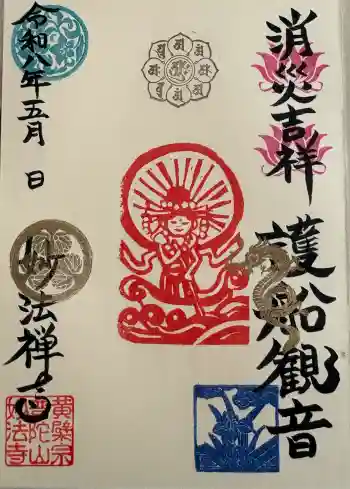 消災吉祥
護船観音
令和八年五月 日
妙法禅寺
黄檗宗
普陀山
妙法寺